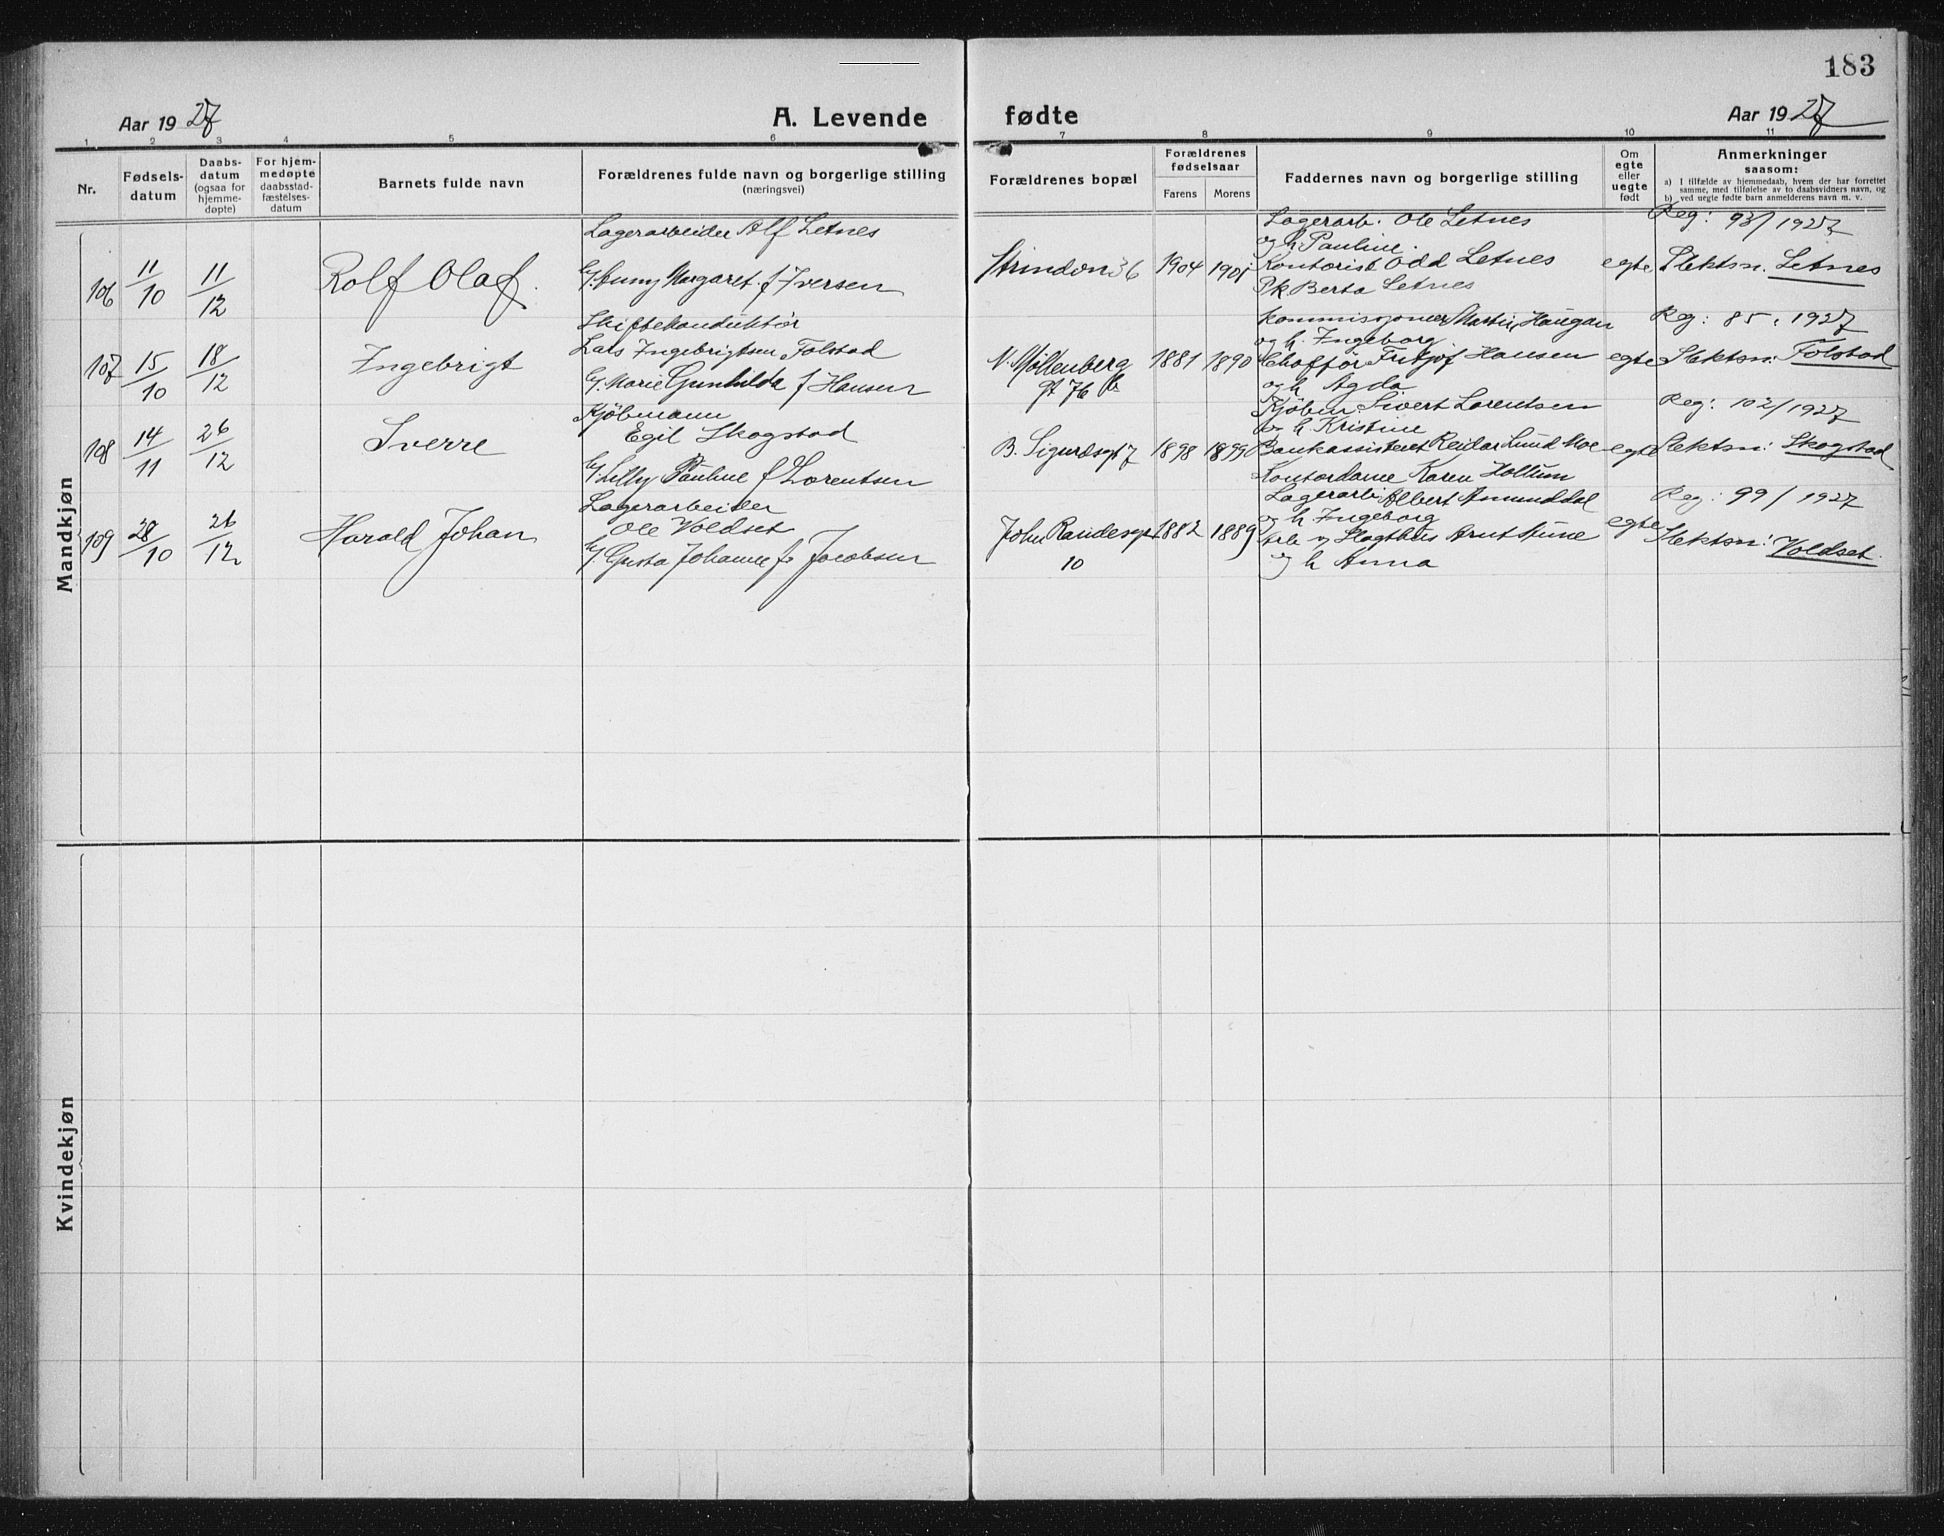 183
Aar 1927
A. Levende fødte
Aar 1927
1 2 3 4 5 6 7 8 9 10 11
Nr.
Fødsels-
datum
Daabs-
datum
(ogsaa for
hjemme-
døpte)
For hjem-
medøpte
daabsstad-
fæstelses-
datum
Barnets fulde navn
Forældrenes fulde navn og borgerlige stilling
(næringsvei)
Forældrenes bopæl
Forældrenes
fødselsaar
Farens Morens
Faddernes navn og borgerlige stilling
Om
egte
eller
uegte
født
Anmerkninger
saasom:
a) I tilfælde av hjemmedaab, hvem der har forrettet
samme, med tilføielse av to daabsvidners navn, og
b) ved uegte fødte barn anmelderens navn m. v.
Mandkjøn
106
11/10
11/12
Rolf Olaf.
Lagerarbeider Alf Letnes
Margaret f Iversen
Strindvn 36
1904 1901
Lagerarb. Ole Letnes
og h Pauline.
Kontorist Odd Letnes
Pk Berta Letnes
egte
Reg: 93/1927
Slektsn. Letnes
107
15/10
18/12
Ingebrigt
Skiftekonduktör
Lars Ingebrigtsen Folstad
Marie Gunhilda f Hansen
N. Möllenberg
gt 76 b
1881 1890
Kommissjonær Martin Haugan
og h. Ingeborg
Chafför Fritjof Hansen
og h Agda
egte
Reg: 85, 1927
Slektsn: Folstad
108
14/11
26/12
Sverre
Kjöbmann
Egil Skogstad
Lilly Pauline f Lorentsen
B. Sigurdsgt 7
1898 1899
Kjöbm Sivert Lorentsen
og h Kristine
Bankassistent Reidar Lund Moe
Kontordame Karen Hollum
egte
Reg: 102/1927
Slektsn: Skogstad
109
28/10
26/12
Harald Johan
Lagerarbeider
Ole Voldset
Gusta Johanne f. Jacobsen
John
10
1882 1889
Lagerarb Albert Amunddal
og h Ingeborg
og h Anna
egte
Reg: 99/1927
Slektsn: Voldset.
Kvindekjøn